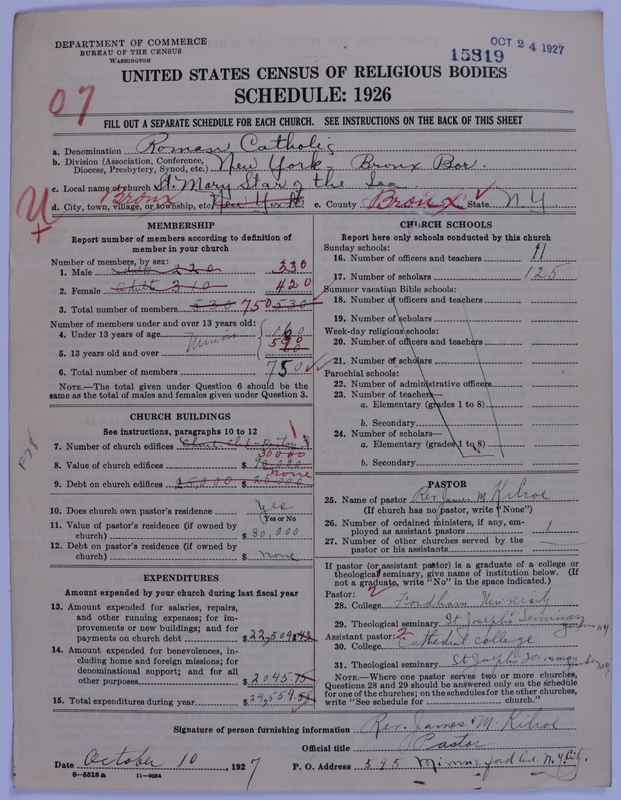 DEPARTMENT OF COMMERCE
BUREAU OF THE CENSUS
WASHINGTON
15819
OCT 24 1927
UNITED STATES CENSUS OF RELIGIOUS BODIES
SCHEDULE: 1926
07
FILL OUT A SEPARATE SCHEDULE FOR EACH CHURCH. SEE INSTRUCTIONS ON THE BACK OF THIS SHEET
a. Denomination Roman Catholic
b. Division (Association, Conference, Diocese, Presbytery, Synod, etc.) New York - Bronx Bor.
c. Local name of church St. Mary Star of the Sea
d. City, town, village, or township, etc. New York Bronx e. County Bronx State N.Y.
MEMBERSHIP
Report number of members according to definition of member in your church
Number of members, by sex:
1. Male 330
2. Female 420
3. Total number of members 530 750 530
Number of members under and over 13 years old:
4. Under 13 years of age 160
5. 13 years old and over 590
6. Total number of members 750
NOTE.—The total given under Question 6 should be the same as the total of males and females given under Question 3.
CHURCH BUILDINGS
See instructions, paragraphs 10 to 12
7. Number of church edifices 1
8. Value of church edifices $ 30000
9. Debt on church edifices 25,000 $ 25,000 none
10. Does church own pastor's residence Yes
(Yes or No)
11. Value of pastor's residence (if owned by church) $ 30,000
12. Debt on pastor's residence (if owned by church) $ None
EXPENDITURES
Amount expended by your church during last fiscal year
13. Amount expended for salaries, repairs, and other running expenses; for improvements or new buildings; and for payments on church debt $ 22,509.43
14. Amount expended for benevolences, including home and foreign missions; for denominational support; and for all other purposes $ 2045.15
15. Total expenditures during year $ 24,554.58
CHURCH SCHOOLS
Report here only schools conducted by this church
Sunday schools:
16. Number of officers and teachers 11
17. Number of scholars 125
Summer vacation Bible schools:
18. Number of officers and teachers
19. Number of scholars
Week-day religious schools:
20. Number of officers and teachers
21. Number of scholars
Parochial schools:
22. Number of administrative officers
23. Number of teachers—
a. Elementary (grades 1 to 8)
b. Secondary
24. Number of scholars—
a. Elementary (grades 1 to 8)
b. Secondary
PASTOR
25. Name of pastor Rev. James M. Kilroe
(If church has no pastor, write "None")
26. Number of ordained ministers, if any, employed as assistant pastors 1
27. Number of other churches served by the pastor or his assistants
If pastor (or assistant pastor) is a graduate of a college or theological seminary, give name of institution below. (If not a graduate, write "No" in the space indicated.)
Pastor:
28. College 2 Fordham University
29. Theological seminary St Joseph's Seminary
Assistant pastor: 2
30. College Cathedral College
31. Theological seminary St Joseph's Seminary
NOTE.—Where one pastor serves two or more churches, Questions 28 and 29 should be answered only on the schedule for one of the churches; on the schedules for the other churches, write "See schedule for church."
Signature of person furnishing information Rev. James M. Kilroe
Official title Pastor
Date October 10, 1927 P. O. Address 595 Minneford Ave. N.Y. City.
8—5518 a 11—9064